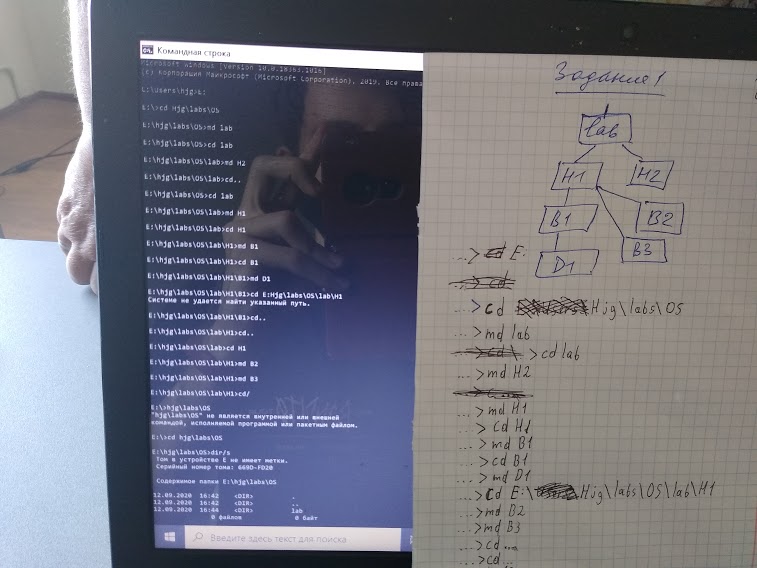 Командная строка
Microsoft Windows [Version 10.0.18363.1016]
(c) Корпорация Майкрософт (Microsoft Corporation), 2019. Все права
C:\Users\hjg>E:
E:\>cd Hjg\labs\OS
E:\hjg\labs\OS>md lab
E:\hjg\labs\OS>cd lab
E:\hjg\labs\OS\lab>md H2
E:\hjg\labs\OS\lab>cd..
E:\hjg\labs\OS>cd lab
E:\hjg\labs\OS\lab>md H1
E:\hjg\labs\OS\lab>cd H1
E:\hjg\labs\OS\lab\H1>md B1
E:\hjg\labs\OS\lab\H1>cd B1
E:\hjg\labs\OS\lab\H1\B1>md D1
E:\hjg\labs\OS\lab\H1\B1>cd E:Hjg\labs\OS\lab\H1
Системе не удается найти указанный путь.
E:\hjg\labs\OS\lab\H1\B1>cd..
E:\hjg\labs\OS\lab\H1>cd..
E:\hjg\labs\OS\lab>cd H1
E:\hjg\labs\OS\lab\H1>md B2
E:\hjg\labs\OS\lab\H1>md B3
E:\hjg\labs\OS\lab\H1>cd/
E:\>hjg\labs\OS
"hjg\labs\OS" не является внутренней или внешней
командой, исполняемой программой или пакетным файлом.
E:\>cd hjg\labs\OS
E:\hjg\labs\OS>dir/s
Том в устройстве E не имеет метки.
Серийный номер тома: 669D-FD20
Содержимое папки E:\hjg\labs\OS
12.09.2020 16:42 <DIR> .
12.09.2020 16:42 <DIR> ..
12.09.2020 16:44 <DIR> lab
0 файлов 0 байт
Введите здесь текст для поиска
Задание 1
lab
H1 H2
B1 B2
B3
D1
...> E:
...> cd Hjg\labs\OS
...> md lab
> cd lab
...> md H2
...> md H1
...> cd H1
...> md B1
...> cd B1
...> md D1
...> cd E:\Hjg\labs\OS\lab\H1
...> md B2
...> md B3
...> cd...
...> cd...